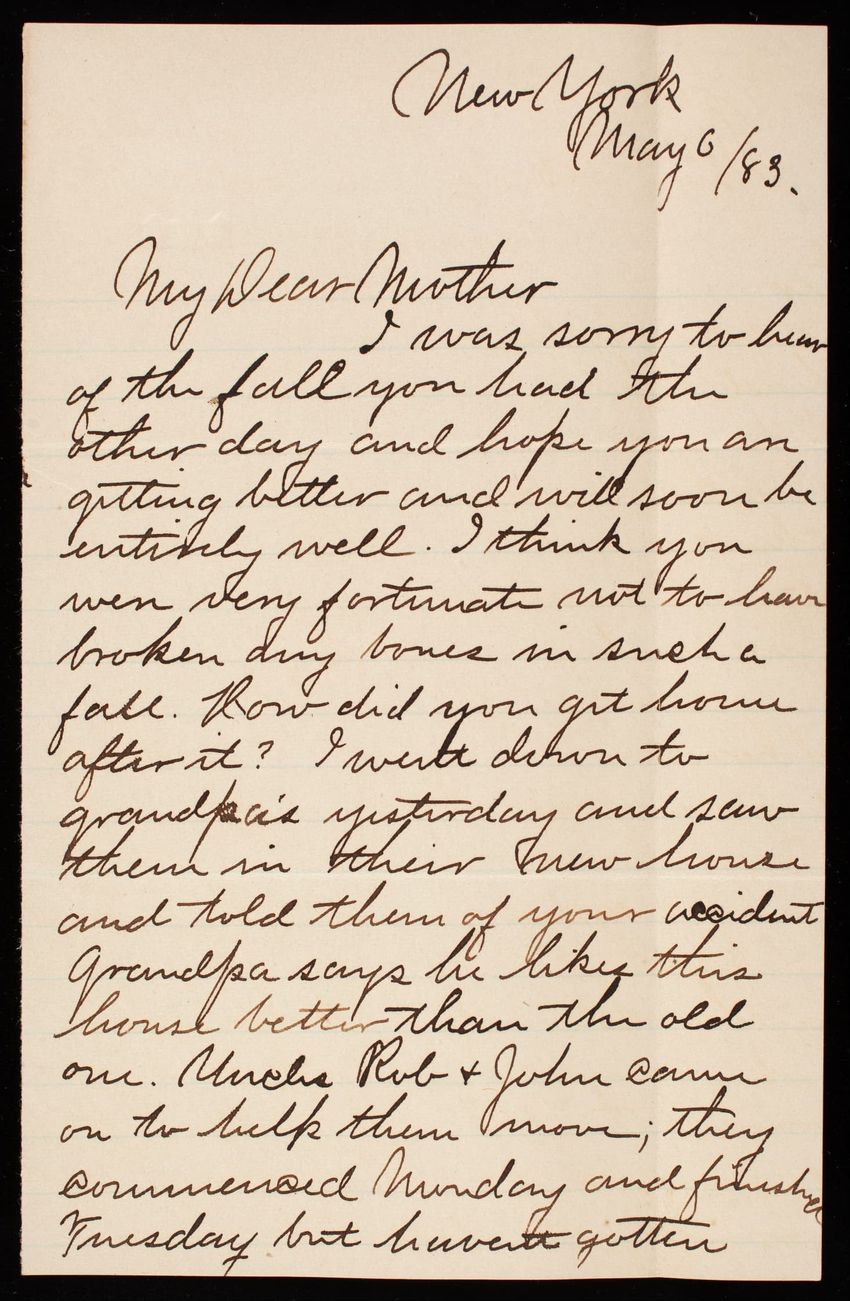 New York
May 6/83.
My Dear Mother
I was sorry to hear
of the fall you had the
other day and hope you are
getting better and will soon be
entirely well. I think you
were very fortunate not to have
broken any bones in such a
fall. How did you get home
after it? I went down to
grandpa's yesterday and saw
them in their new house
and told them of your accident
Grandpa says he likes this
house better than the old
one. Uncle Rob & John came
on to help them move; they
commenced Monday and finished
Tuesday but havent gotten